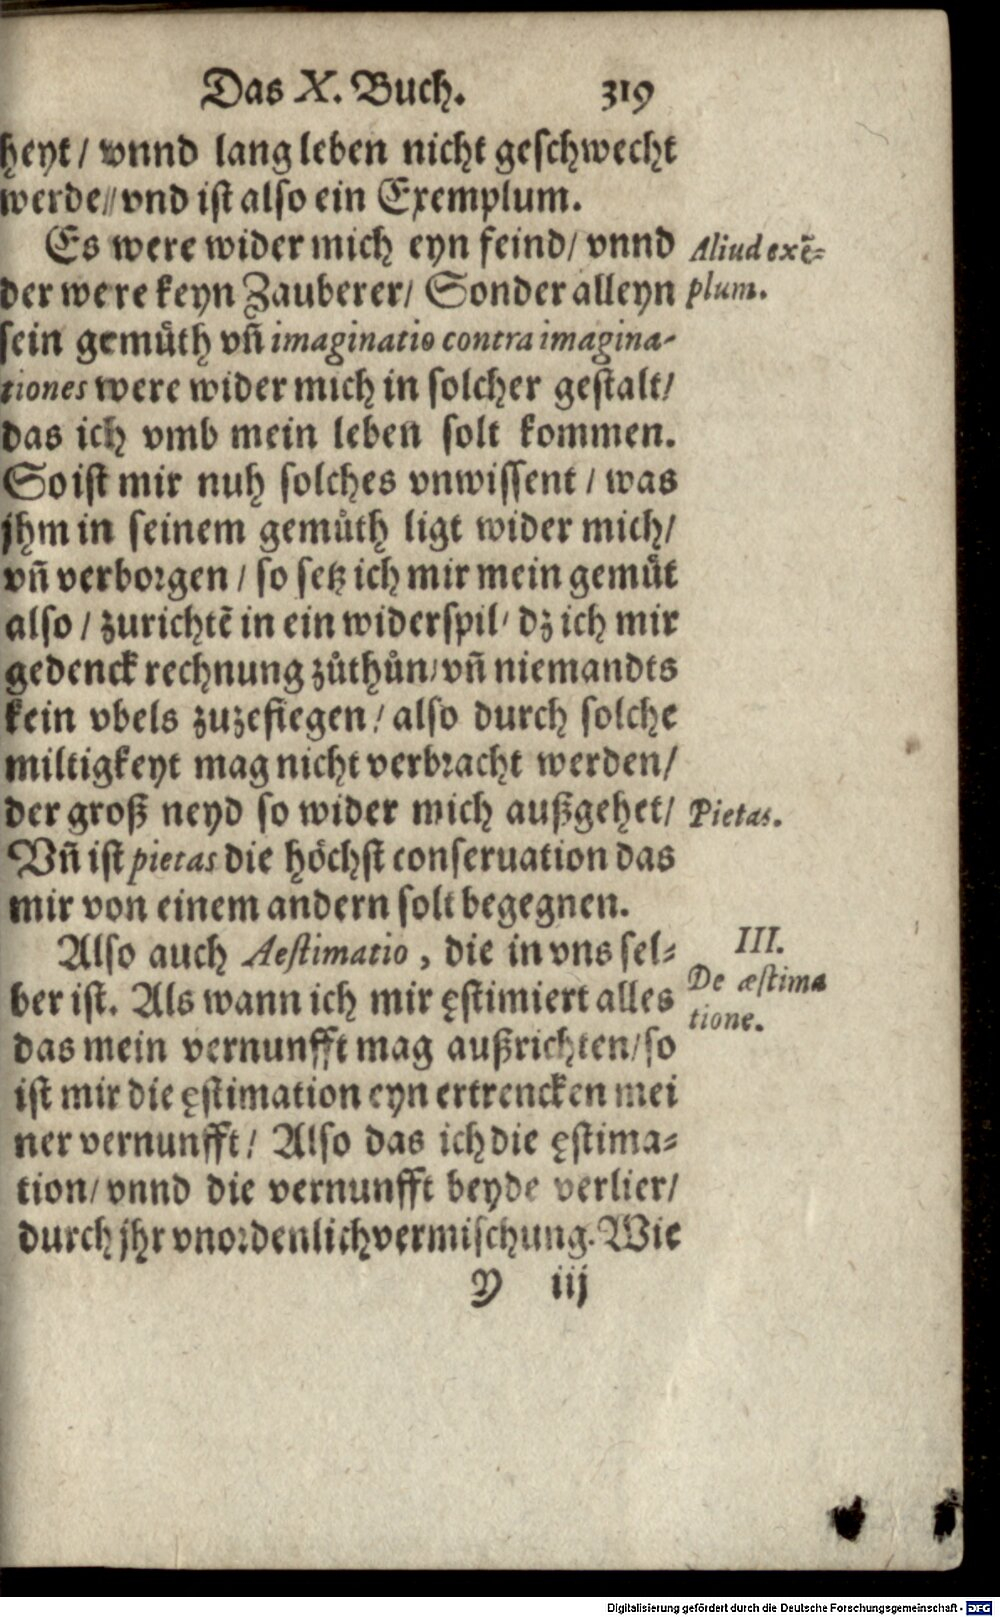 Das X. Buch. 319
heyt / vnnd lang leben nicht geschwecht
werde // vnd ist also ein Exemplum.
Es were wider mich eyn feind / vnnd
der were keyn Zauberer / Sonder alleyn
sein gemůth vñ imaginatio contra imagina-
tiones were wider mich in solcher gestalt /
das ich vmb mein leben solt kommen.
So ist mir nuh solches vnwissent / was
jhm in seinem gemůth ligt wider mich /
vñ verborgen / so setz ich mir mein gemůt
also / zurichtẽ in ein widerspil / dz ich mir
gedenck rechnung zůthůn / vñ niemandts
kein vbels zuzefiegen / also durch solche
miltigkeyt mag nicht verbracht werden /
der groß neyd so wider mich außgehet /
Vñ ist pietas die höchst conseruation das
mir von einem andern solt begegnen.
Also auch Aestimatio, die in vns sel-
ber ist. Als wann ich mir ęstimiert alles
das mein vernunfft mag außrichten / so
ist mir die ęstimation eyn ertrencken mei
ner vernunfft / Also das ich die ęstima-
tion / vnnd die vernunfft beyde verlier /
durch jhr vnordenlich vermischung. Wie
Y iij
Aliud exẽ-
plum.
Pietas.
III.
De æstima
tione.
Digitalisierung gefördert durch die Deutsche Forschungsgemeinschaft - DFG